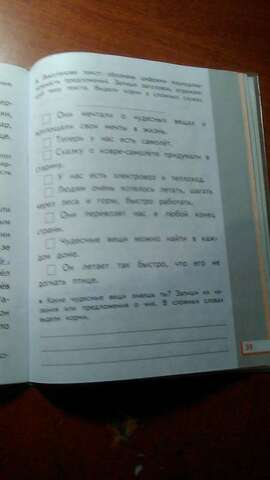 4. Восстанови текст: обозначь цифрами последова-
тельность предложений. Запиши заголовок, отражаю-
щий тему текста. Выдели корни в сложных словах.
Они мечтали о чудесных вещах и
воплощали свои мечты в жизнь.
Теперь у нас есть самолёт.
Сказку о ковре-самолёте придумали в
старину.
У нас есть электровоз и теплоход.
Людям очень хотелось летать, шагать
через леса и горы, быстро работать.
Они перевозят нас в любой конец
страны.
Чудесные вещи можно найти в каж-
дом доме.
Он летает так быстро, что его не
догнать птице.
• Какие чудесные вещи знаешь ты? Запиши их на-
звания или предложения о них. В сложных словах
выдели корни.
39